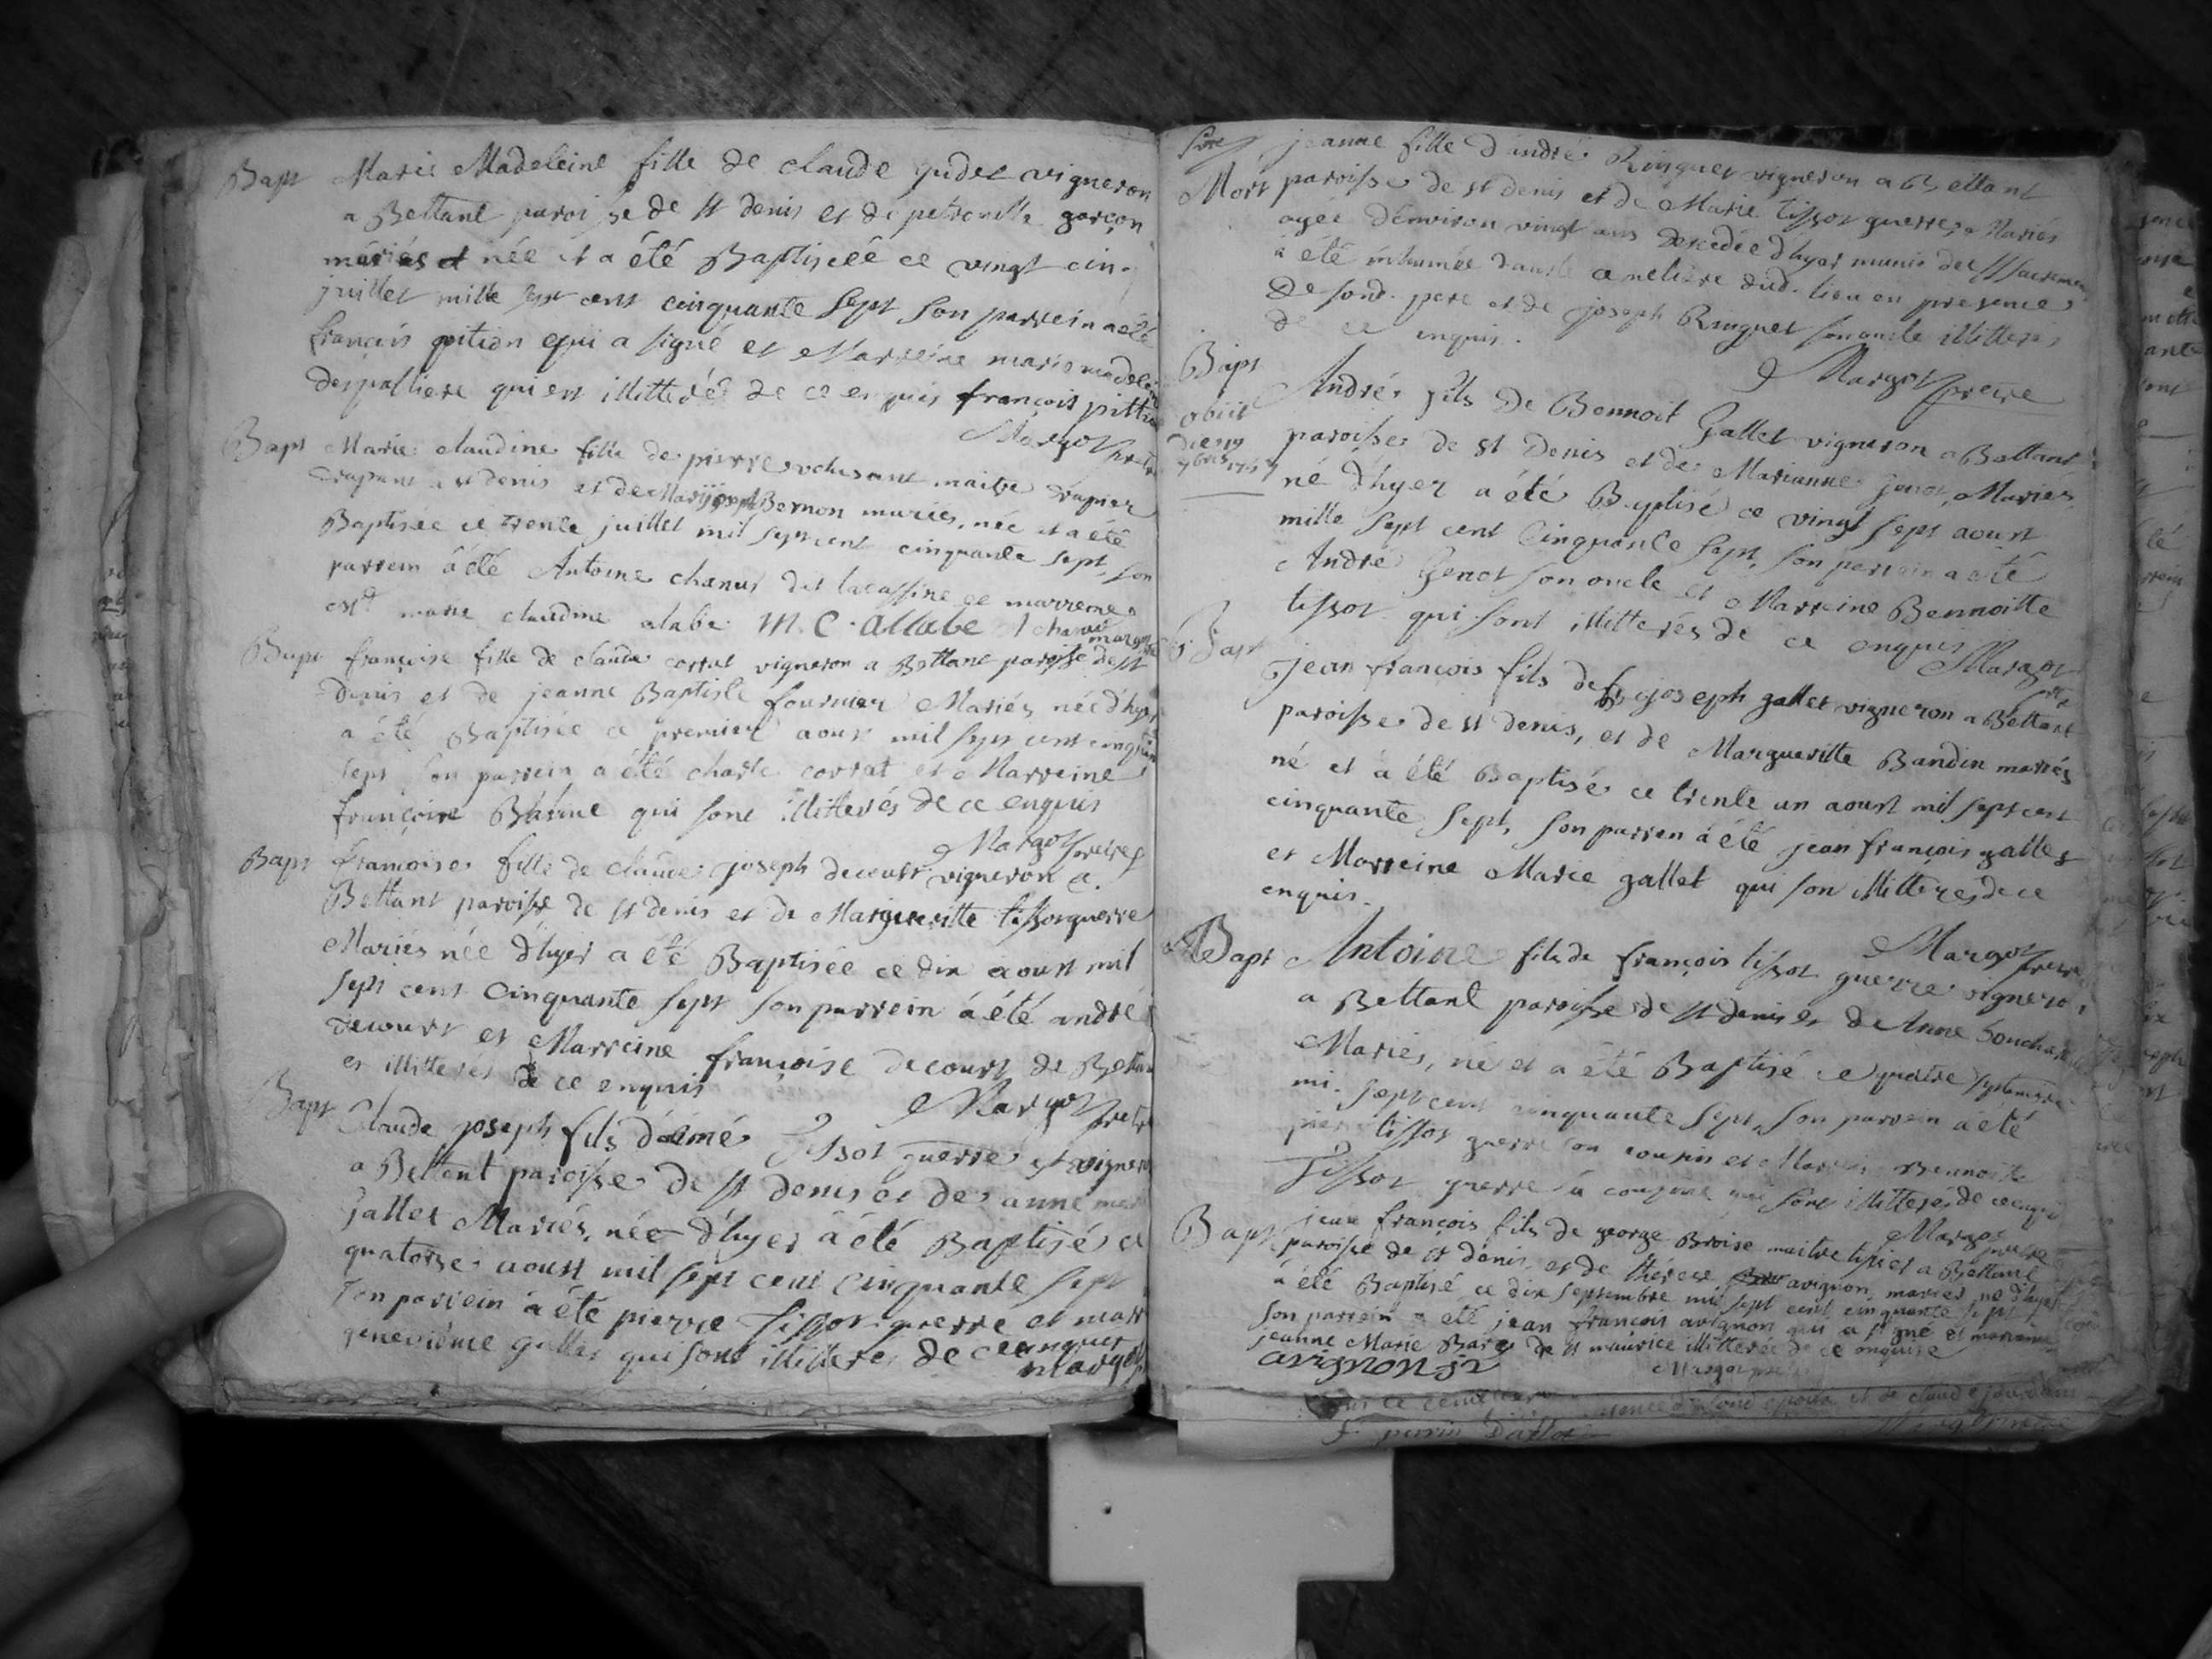 Bapt Marie Madeleine fille de claude gudet vigneron
a Bettant paroisse de st denis et de petronille garçon
mariés et née et a été Baptiseéé ce vingt cinq
juillet mille sept cent cinquante sept son parrein a été
françois pition qui a signé et Marreine marie madeleine
despalliere qui est illitterée de ce enquis françois pittion
Margot pretre
Bapt Marie claudine fille de pierre maitre drapier
drapant a st denis et de Bernon mariés, née et a été
Baptisée ce trente juillet mil sept cent cinquante sept, son
parrein à été Antoine chanus dit lacassine et marreine
est marie claudine alabe M. C. allabe chanus
margot
Bapt françoise fille de claude corrat vigneron a Bettant paroisse de st
denis et de jeanne Baptiste fournier Mariés née d'hyer
a été Baptisée ce premier aoust mil sept cent cinquante
sept son parrein a été charle corrat et Marreine
françoise qui sont illitterés de ce enquis
Margot pretre
Bapt françoise fille de claude joseph decourt vigneron a
Bettant paroisse de st denis et de Margueritte tissot guerre
Mariés née d'hyer a été Baptisée ce dix aoust mil
sept cent Cinquante sept son parrein à été andré
decourt et Marreine françoise decourt de Bettant
et illitterés de ce enquis
Margot pretre
Bapt Claude joseph fils d'aimé Tissot guerre vigneron
a Bettant paroisse de st denis et de anne
gallet Mariés, née d'hyer à été Baptisé ce
quatorze aoust mil sept cent Cinquante sept
son parrein à été pierre Tissot guerre et
genevieme gallet qui sont illitteres de ce enquis
margot
jeanne fille d'andré Ringuet vigneron a Bettant
Mort paroisse de st denis et de Marie tissot guerre Mariés
agée d'environ vingt ans decedée d'hyer munie des sts sacremens
à été inhumée dans le cimetiere dud. lieu en presence
de sond. pere et de joseph Ringuet son oncle illitterés
de ce enquis.
Margot pretre
Bapt André fils de Bennoit Gallet vigneron a Bettant
obiit
paroisse de st Denis et de Marianne genot Mariés
né d'hyer a été Baptisé ce vingt sept aoust
mille sept cent Cinquante sept, son parrein a été
André Genot son oncle et Marreine Bennoitte
tissot qui sont illitterés de ce enquis
Margot
Bapt jean françois fils de joseph gallet vigneron a Bettant
paroisse de st denis, et de Margueritte Bandin mariés
né et à été Baptisé ce trente un aoust mil sept cent
cinquante sept, son parren à été jean françois gallet
et Marreine Marie gallet qui son illitteres de ce
enquis.
Margot pretre
Bapt Antoine fils de françois tissot guerre vigneron
a Bettant paroisse de st denis et de Anne
Mariés, né et a été Baptisé ce quatre septembre
mil sept cent cinquante sept, son parrein à été
pierre tissot guerre son cousin et Marreine Bennoitte
Tissot guerre sa cousine qui sont illitterés de ce enquis
Margot pretre
Bapt jean françois fils de george Broise maitre tissier a Bettant
paroisse de st denis et de therese avignon mariés né d'hyer
à été Baptisé ce dix septembre mil sept cent cinquante sept
son parrein a été jean françois avignon qui a signé et marreine
jeanne Marie Bare de st maurice illitterée de ce enquise
avignon
Margot pretre